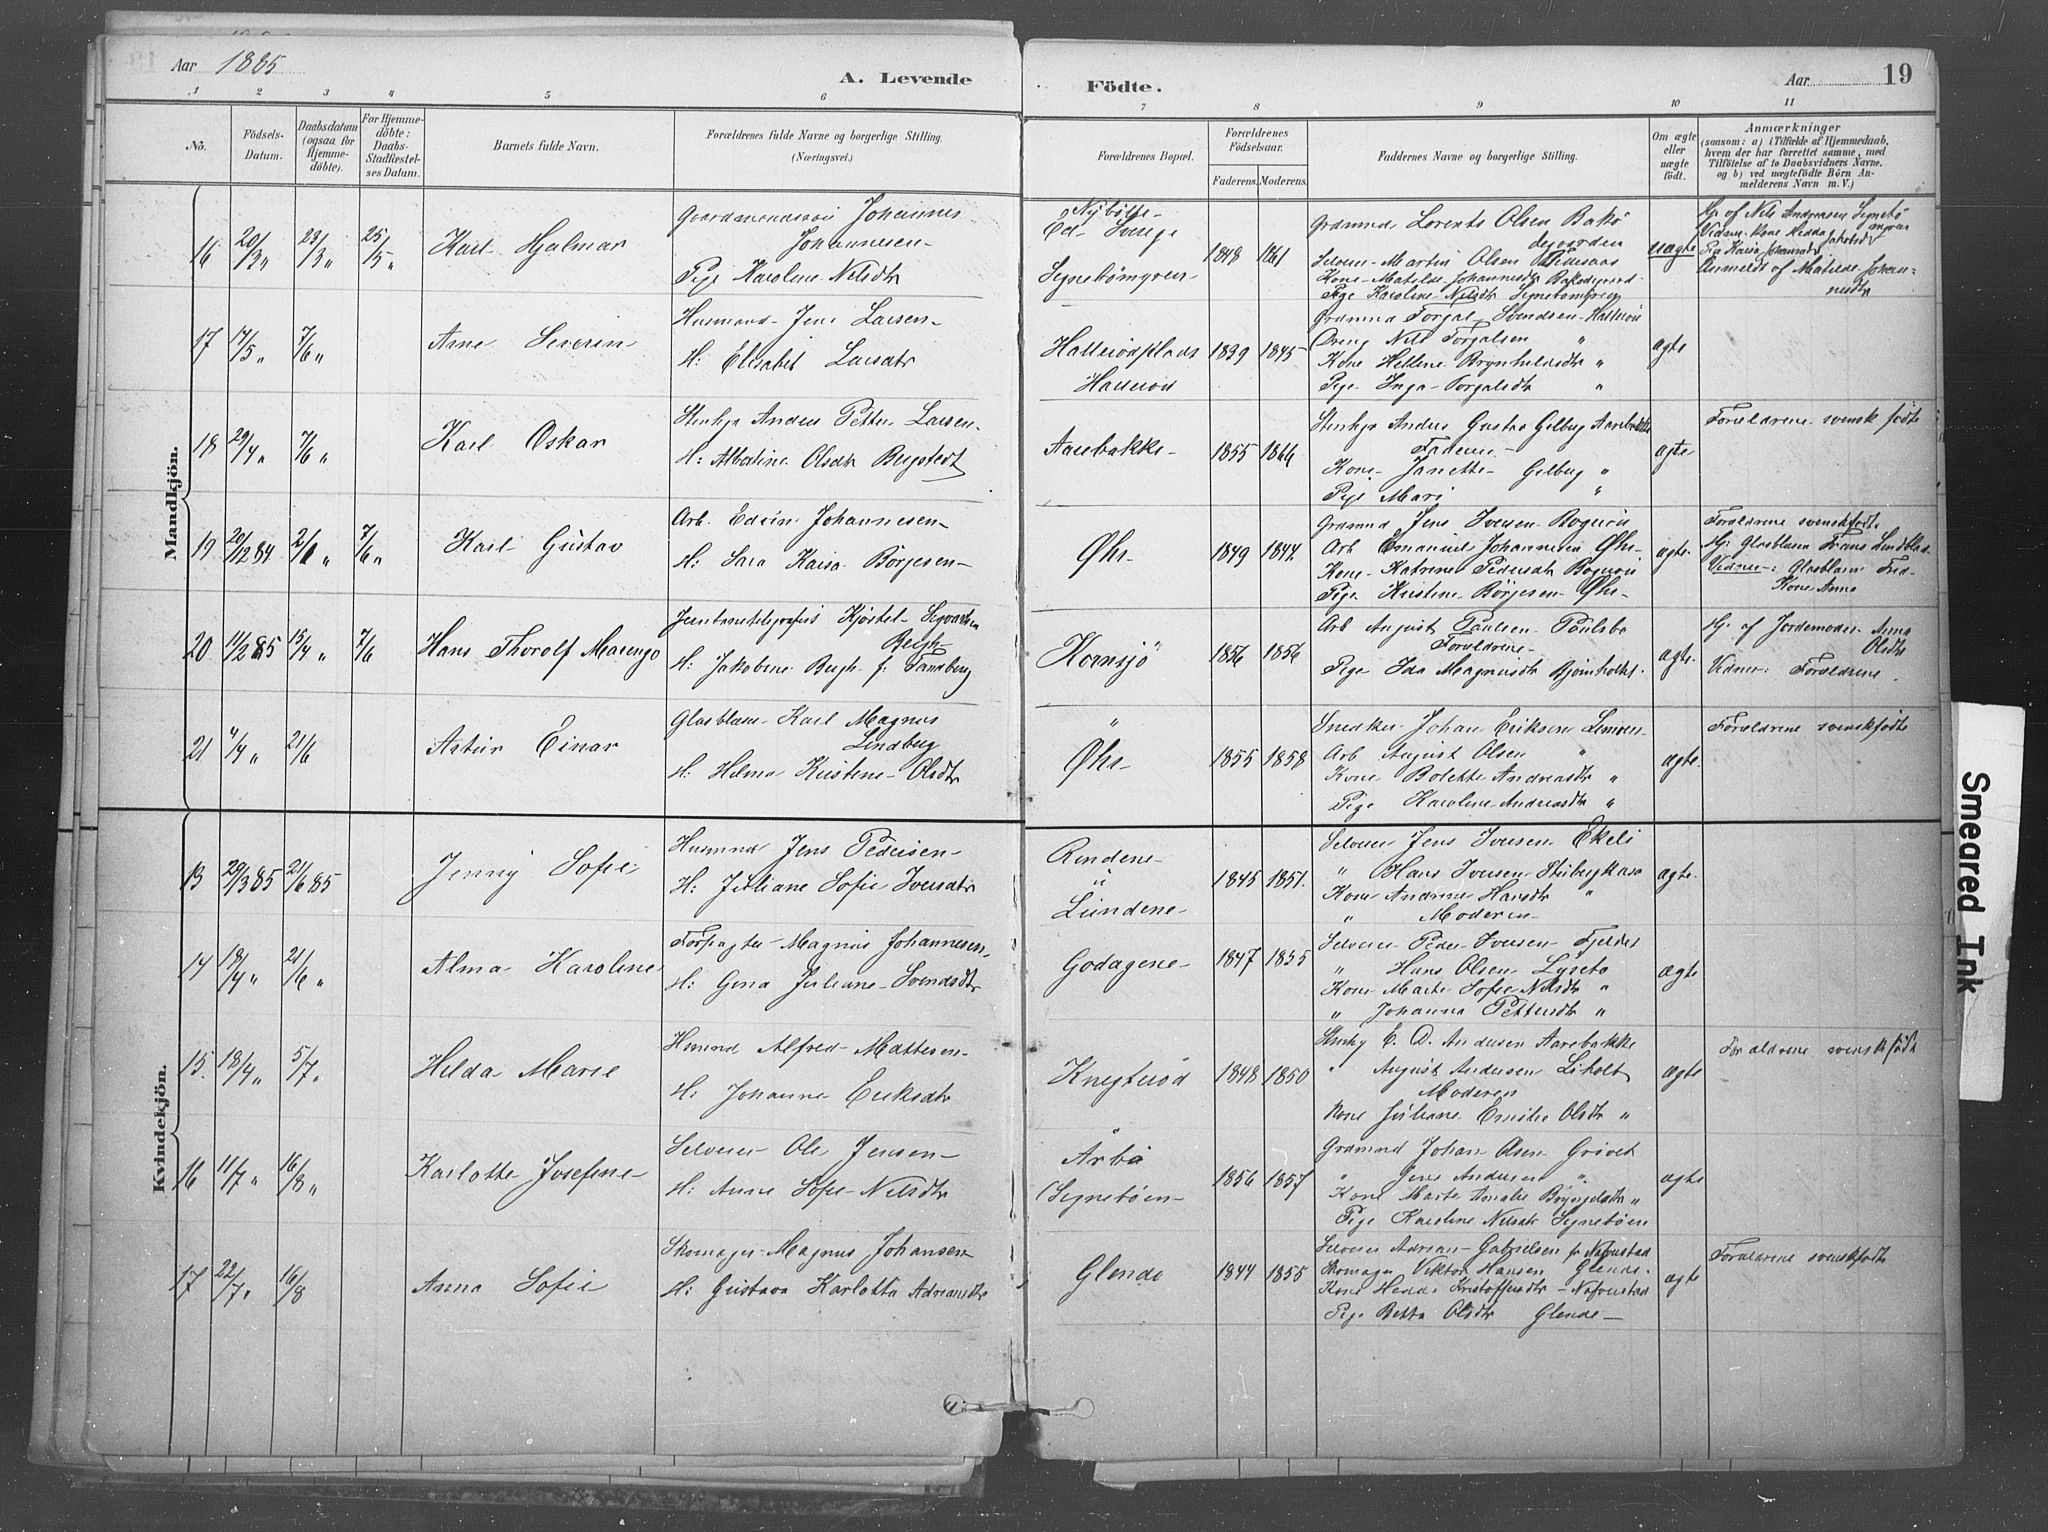 Aar 1885
A. Levende
Födte.
Aar
19
1 2 3 4 5 6 7 8 9 10 11
No.
Födsels-
Datum.
Daabsdatum
(ogsaa for
Hjemme-
döbte).
For Hjemme-
döbte:
Daabs-
Stadfæstel-
ses Datum.
Barnets fulde Navn.
Forældrenes fulde Navne og borgerlige Stilling.
(Næringsvei.)
Forældrenes Bopæl.
Forældrenes
Födselsaar.
Faderens. Moderens.
Faddernes Navne og borgerlige Stilling.
Om ægte
eller
uægte
födt.
Anmærkninger
(saasom: a) i Tilfælde af Hjemmedaab,
hvem der har forrettet samme, med
Tilföielse af to Daabsvidners Navne,
og b) ved uægtefödte Börn An-
melderens Navn m. V.)
Mandkjön.
16 20/3 " 23/3 " 25/5 "
Karl Hjalmar
Gaardmandssön Johannes
Johannesen
Pige Karoline Nilsdtr
Nybölte
Ed Sverige
Signebömyren
1848 1861
Grdmnd Lorents Olsen Bakö
degaarden
Selveier Martin Olsen
Kone Matilde Johannesdtr Baködegaard
Pige Karoline Nilsdtr Signebömyren
uægte
Hj. af Nils Andreasen Signebö
myren
Vidner Kone Hedda Jakobsdtr
Pige Kaisa Johannesdtr
Anmeldt af Matilde Johan-
nesdtr
17 14/5 " 7/6 "
Arne Severin
Husmand Jens Larsen
H: Elisabet Larsdtr
Halleröd plads
Halleröd
1839 1845
Grdmnd Torgal Svendsen Halleröd
Dreng Nils Torgalsen "
Kone Hellene Brynhildsdtr "
Pige Inga Torgalsdtr "
ægte
18 29/4 " 7/6 "
Karl Oskar
Stenhgr Anders Petter Larsen
H: Albertine Olsdtr Bergstedt
Aarebakke
1855 1866
Stenhgr Anders Gustav Gilberg Aarebakke
Faderen
Kone Janette Gilberg "
Pige Mari "
ægte
Forældrene svensk födte
19 20/12 84 2/1 " 7/6 "
Karl Gustav
Arb. Edvin Johannesen
H: Sara Kaisa Börjesen
Öhr
1849 1847
Grdmnd Jens Iversen Bogeröd
Arb Emanuel Johannesen Öhr
Kone Katrine Pedersdtr Bogeröd
Pige Kristine Börjesen Öhr
ægte
Forældrene svenskfödte
Hj: Glasblaser Frans Lindblad
Vidner: Glasblaser Fred-
Kone Anna
20 11/2 85 15/4 " 7/6
Hans Thorolf Marengo
Jernbanetelegrafist Kjöstel Sigvardsen
Bergh
H: Jakobine Bergh f: Tandberg
Kornsjö
1856 1856
Arb August Paulsen Paulsbo
Forældrene
Pige Ida Magnusdtr Björnholtet
ægte
Hj. af Jordemoder Anna
Olsdtr
Vidner: Forældrene
21 4/4 " 21/6
Artur Einar
Glasblaser Karl Magnus
Lindberg
H: Hilma Kristine Olsdtr
"
Öhr
1855 1858
Snedker Johan Eriksen Lervien
Arb August Olsen "
Kone Bolette Andreasdtr "
Pige Karoline Andreasdtr "
ægte
Forældrene svenskfödte
Kvindekjön.
13 29/3 85 21/6 85
Jenny Sofie
Husmnd Jens Pedersen
H: Juliane Sofie Iversdtr
Rendene
u
Lundene
1845 1851
Selveier Jens Iversen Ekeli
" Hans Iversen Stubergkasa
Kone Andrine Hansdtr "
" Moderen
ægte
14 18/4 " 21/6 "
Alma Karoline
Forpagter Magnus Johannesen
H: Gina Juliane Svendsdtr
Godagene
1847 1855
Selveier Peder Iversen Fjeldet
" Hans Olsen Lyseto
Kone Marte Sofie Nilsdtr "
" Johanna Pettersdtr "
ægte
15. 18/4 " 5/7 "
Hilda Marie
Husmnd Alfred Mattesen
H: Johanne Eriksdtr
Knegteröd
1848 1850
Stenhg E. D. Andersen Aarebakke
" August Andersen Liholt
Moderen
Kone Juliane Emilie Olsdtr "
ægte
Forældrene svensk födt
16 11/7 " 16/8 "
Karlotte Josefine
Selveier Ole Jensen
H: Anne Sofie Nilsdtr
Årbö
(Signeböen
1856 1857
Grdmnd Johan Olsen Grövet
" Jens Andersen "
Kone Marte Amalie Bryngelsdtr "
Pige Karoline Nilsdtr Signeböen
ægte
17 22/7 " 16/8
Anna Sofie
Skomager Magnus Johansen
H: Gustava Karlotta Adriansdtr
Glende
1844 1855
Selveier Adrian Gabrielsen fr Nafvestad
Skomager Viktor Hansen Glende
Kone Hedda Kristoffersdtr Nafvestad
Pige Betta Olsdtr Glende
ægte
Forældrene svenskfödte
Smeared Ink